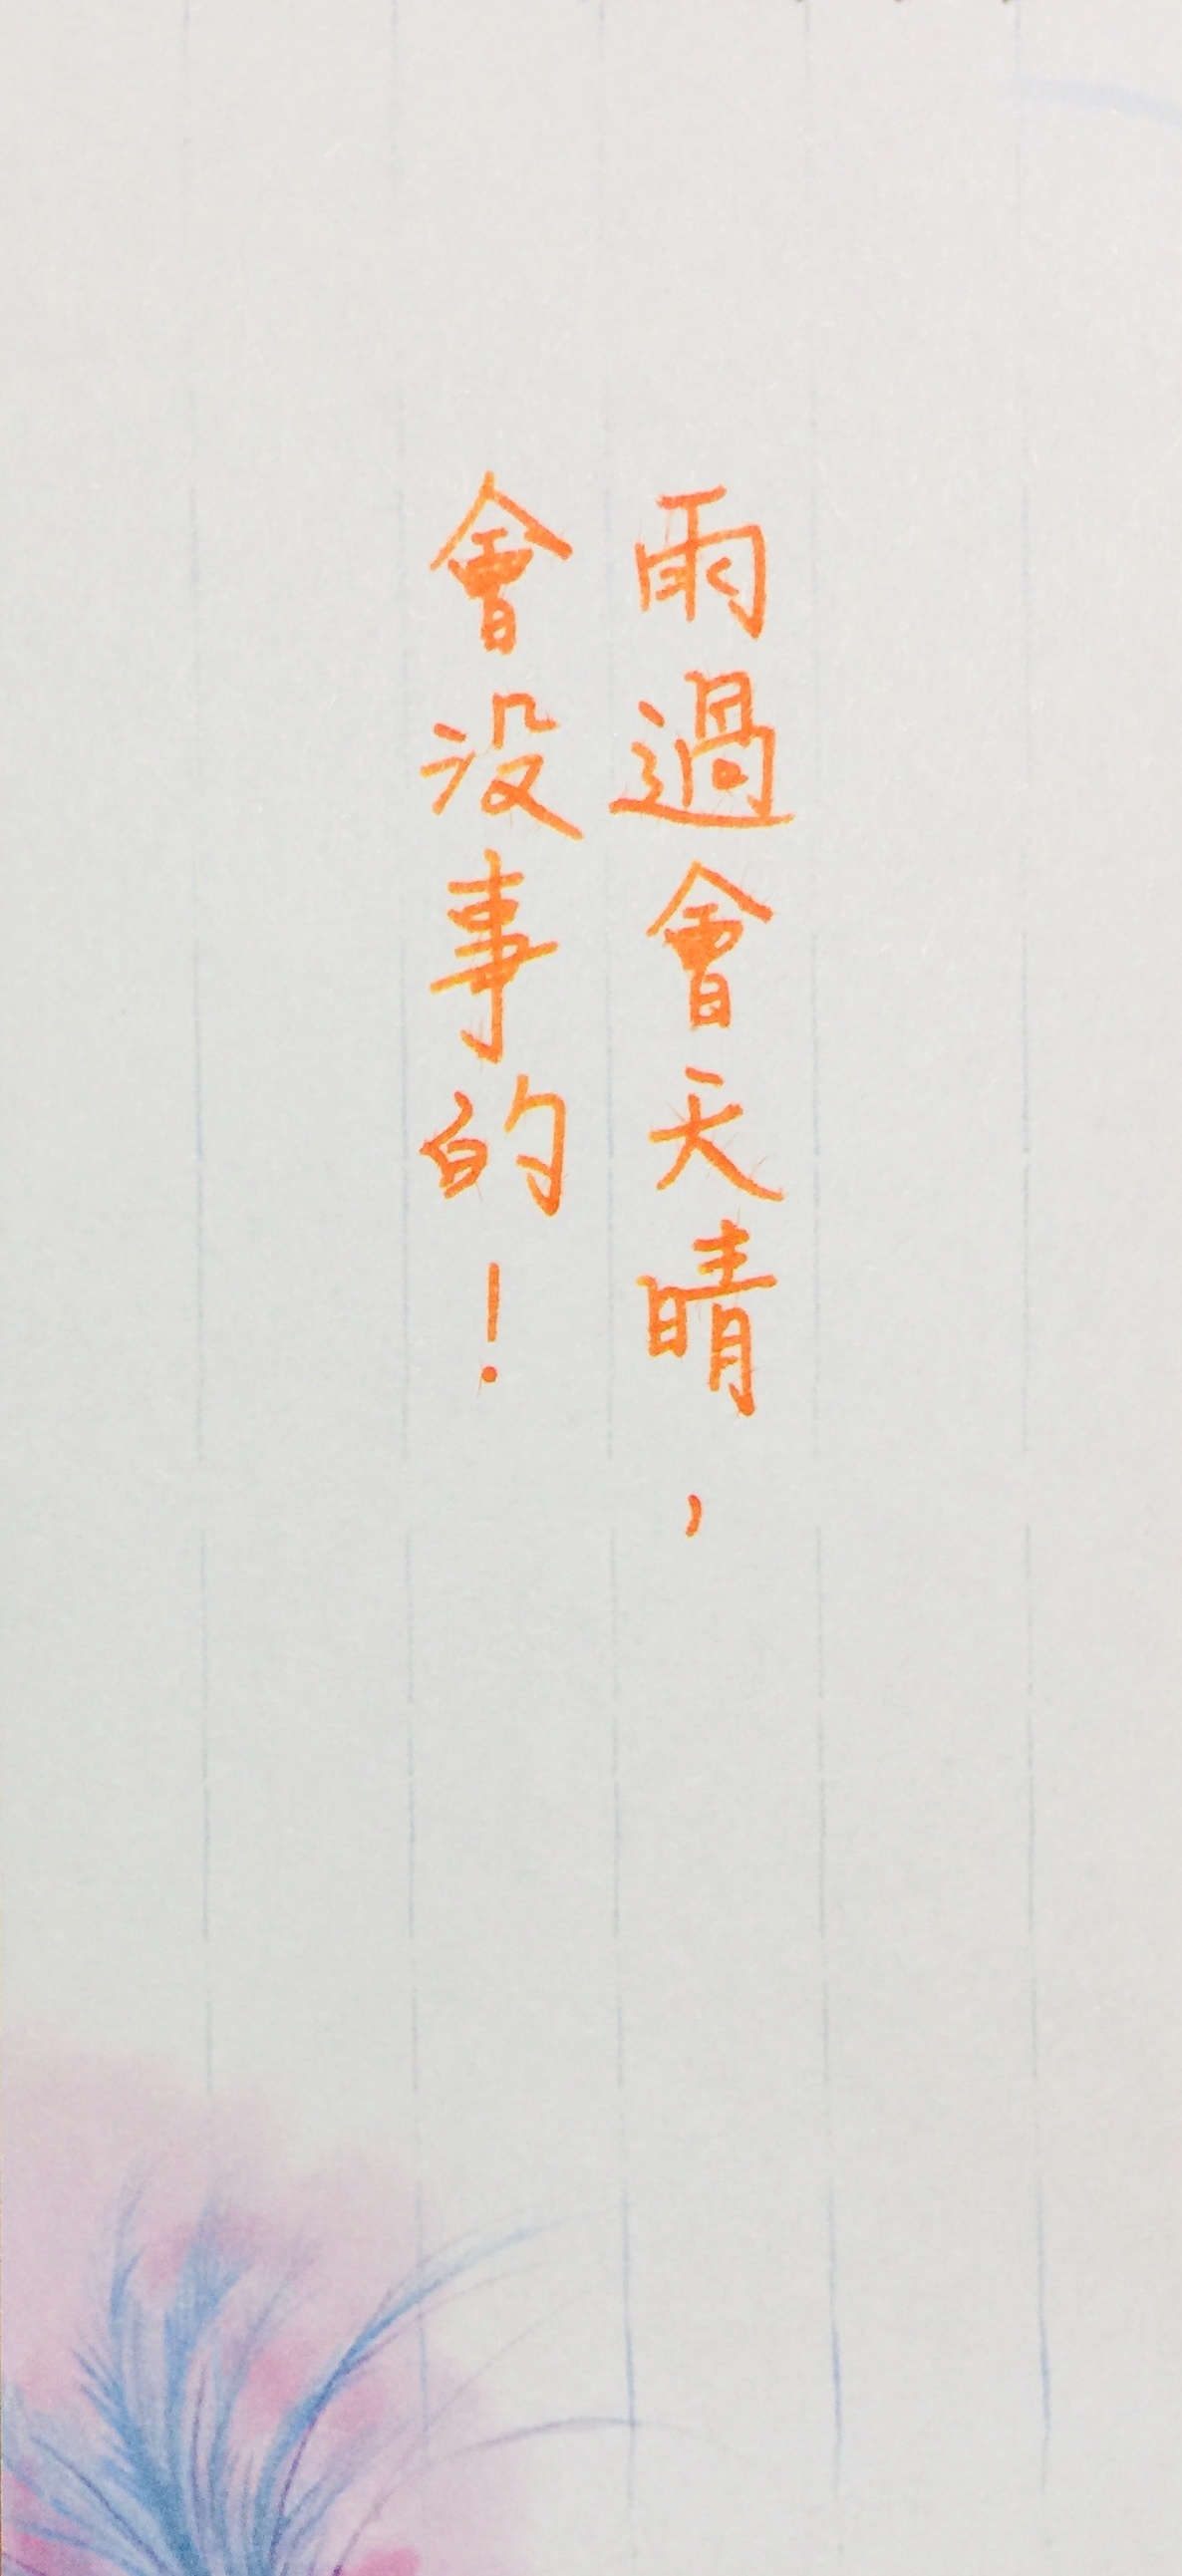 雨過會天晴，
會没事的！